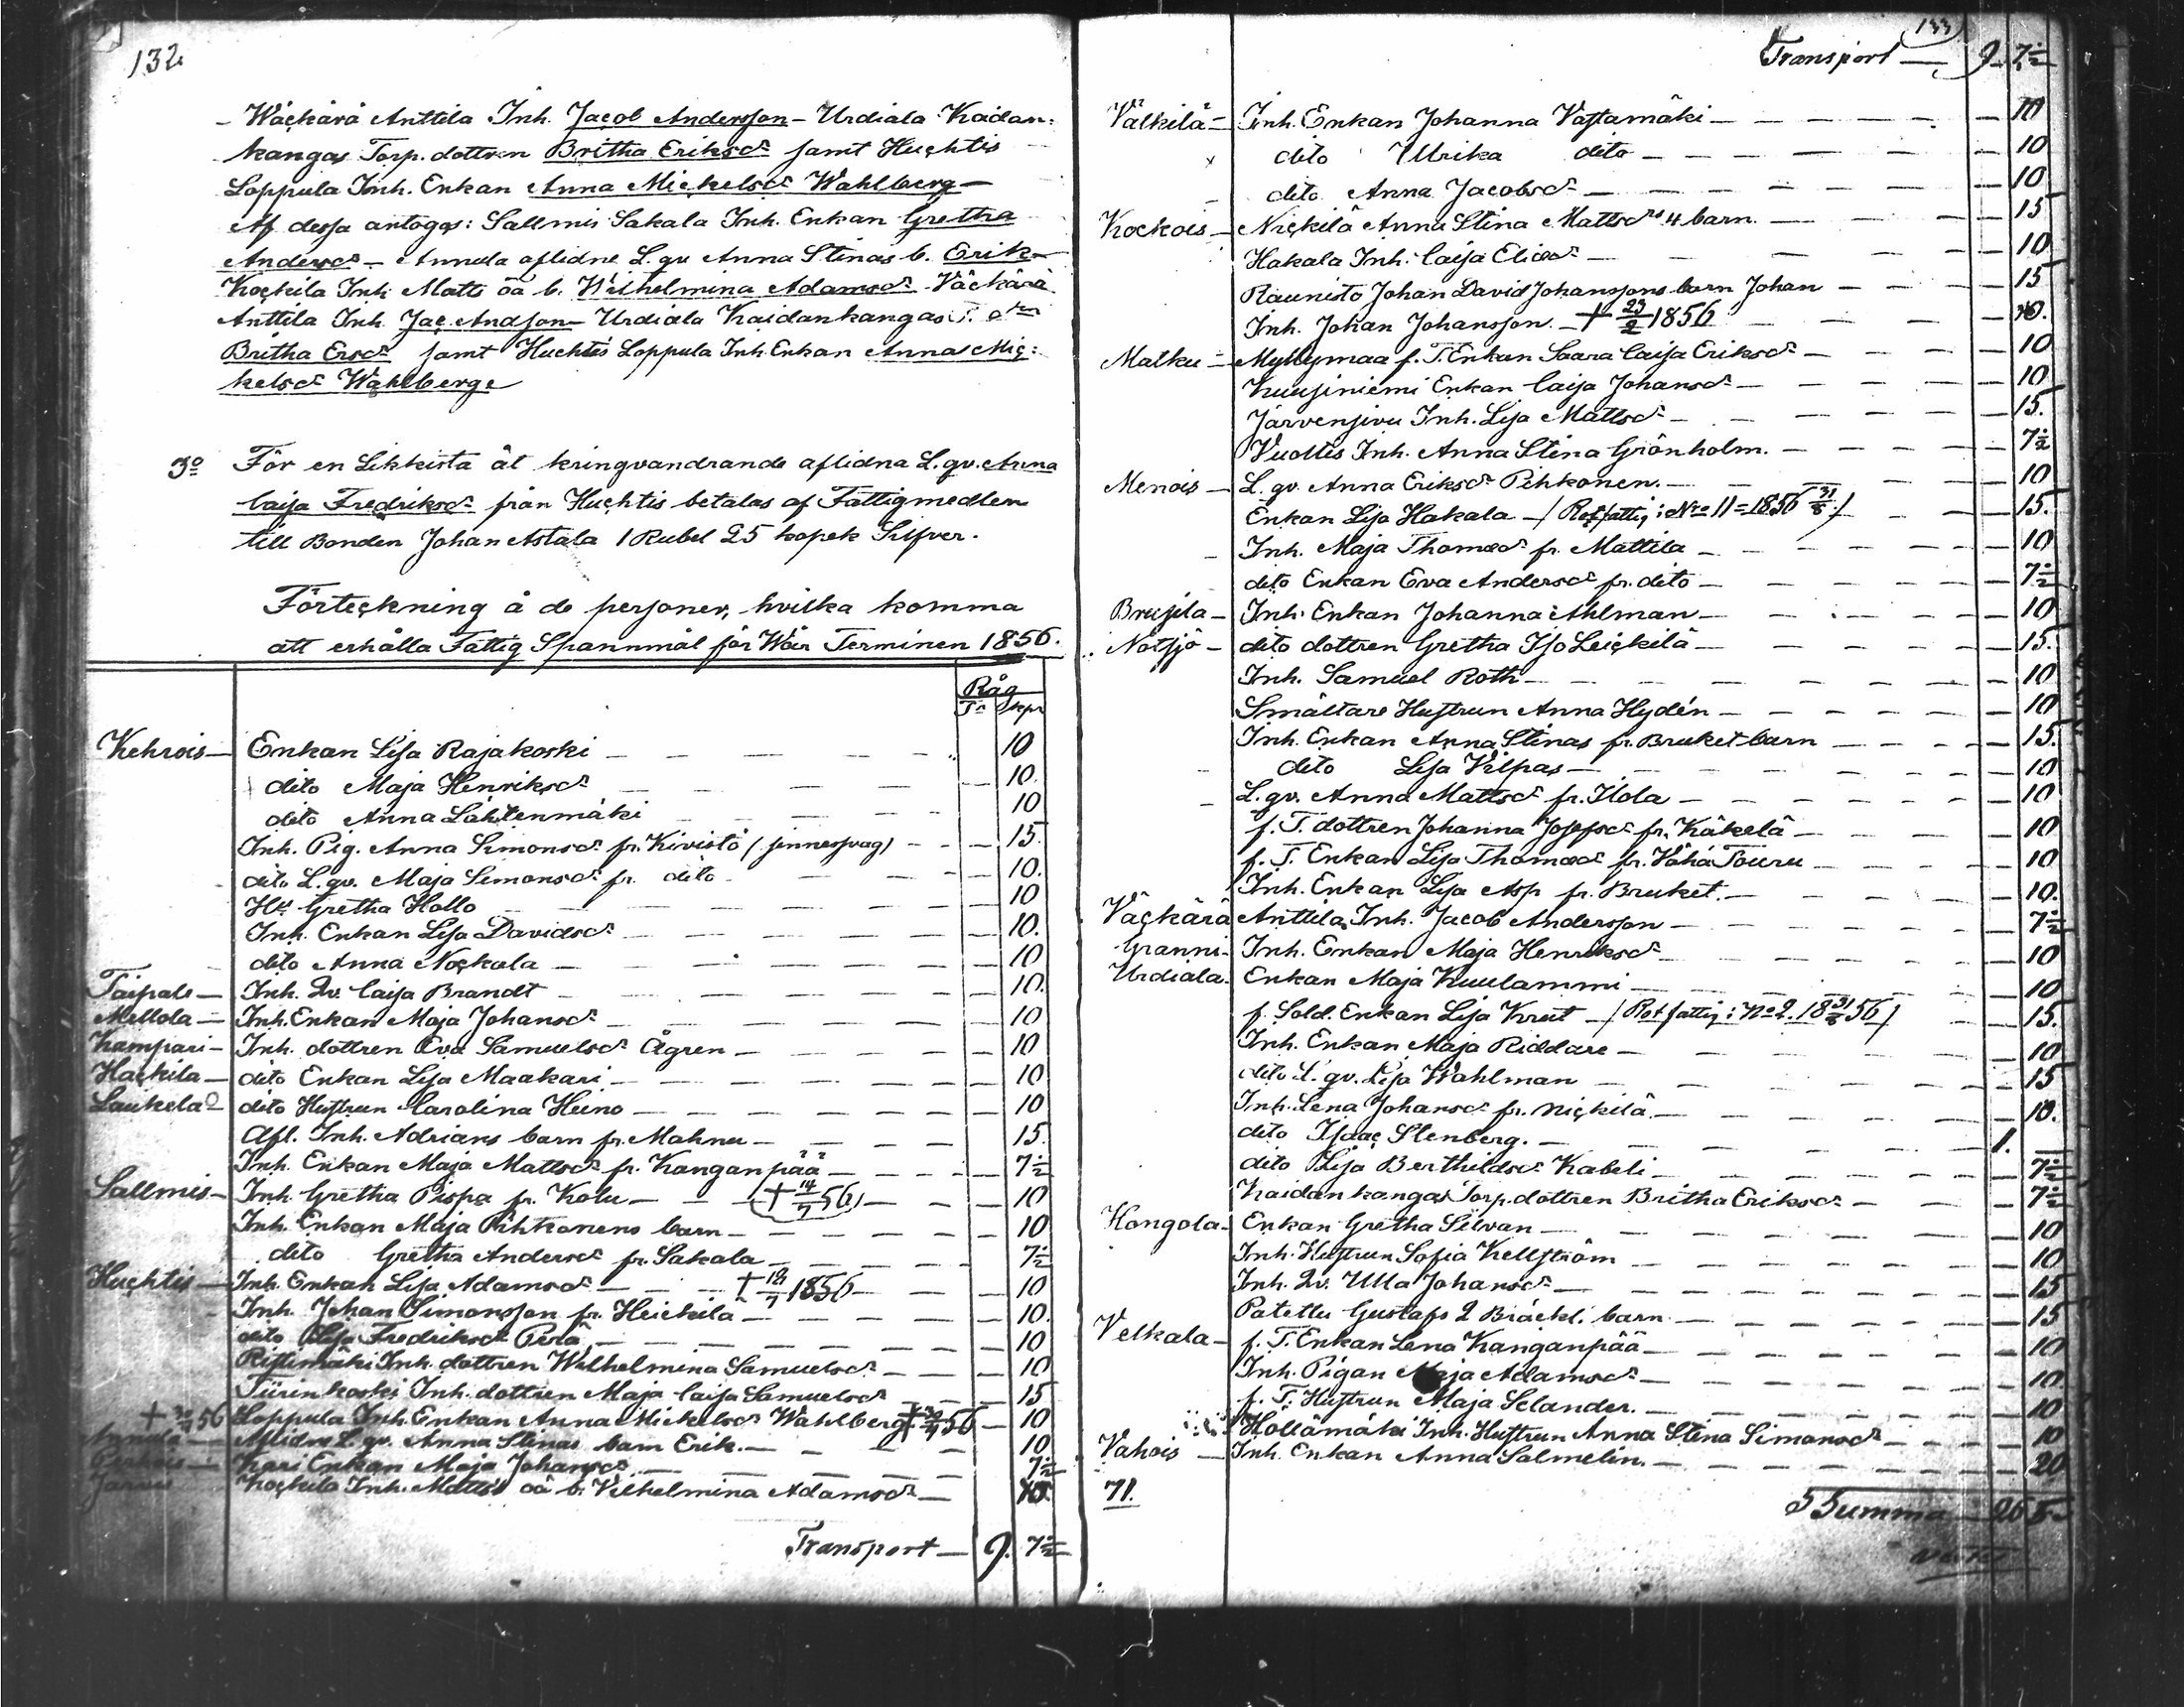 132
- Wäckärä Anttila Inh. Jacob Andersson - Urdiala Kaidan=
kangas Torp. dottren Britha Eriksdr samt Huchtis
Loppula Inh. Enkan Anna Mickelsdr Wahlberg -
Af dessa antogs: Sallmis Sakala Inh. Enkan Gretha
Andersdr - Annula aflidne L. qv Anna Stinas b. Erik -
Kockila Inh Matts oä b. Wilhelmina Adamsdr Väckärä
Anttila Inh. Jac. Andson - Urdiala Kaidankangas T. dtr
Britha Ersdr samt Huchtis Loppula Inh. Enkan Anna Mic=
kelsdr Wahlberg
3o För en Likkista åt kringvandrande aflidna L. qv. Anna
Caisa Fredriksdr från Huchtis betalas af Fattigmedlen
till Bonden Johan Astala 1 Rubel 25 kopek Silfver.
Förteckning å de personer, hvilka komma
att erhålla Fattig Spannmål för Wår Terminen 1856.
Råg
Tr kpr
Kehrois - Enkan Lisa Rajakoski - 10
dito Maja Henriksdr - 10.
dito Anna Lähtenmäki - 10
Inh. Pig. Anna Simonsdr fr. Kivistö (sinnessvag) - 15.
dito L. qv. Maja Simonsdr fr. dito - 10.
Hu Gretha Hollo - 10
Inh. Enkan Lisa Davidsdr - 10.
dito Anna Nockala - 10
Taipale - Inh. Qv. Caisa Brandt - 10.
Mellola - Inh. Enkan Maja Johansdr - 10
Kampari - Inh. dottren Eva Samuelsdr Ågren - 10
Hackila - dito Enkan Lisa Maakari - 10
Laukela - dito Hustrun Carolina Heino - 10
Afl. Inh. Adrians barn fr. Mahnu - 15.
Inh. Enkan Maja Mattsdr fr. Kanganpää - 7½
Sallmis - Inh. Gretha Pispa fr. Kolu - († 14/7 56) - 10
Inh. Enkan Maja Pihkonens barn - 10
dito Gretha Andersdr fr. Sakala - 7½
Huchtis - Inh. Enkan Lisa Adamsdr - † 18/7 1856 - 10
Inh. Johan Simonsson fr. Heickilä - 10.
dito Lisa Fredriksdr Perä - 10
Ristimäki Inh. dottren Wilhelmina Samuelsdr - 10
Tiirinkoski Inh. dottren Maja Caisa Samuelsdr - 15
† 56 Loppula Inh. Enkan Anna Mickelsdr Wahlberg † 56 - 10
Annula - Aflidne L. qv. Anna Stinas barn Erik - 10
Kari Enkan Maja Johansdr - 7½
Järvis Kockila Inh. Matts oä b. Vilhelmina Adamsdr - 10.
Transport - 9. 7½
133
Transport - 9. 7½
Välkilä - Inh. Enkan Johanna Vastamäki - 10
x dito Ulrika dito - 10
dito Anna Jacobsdr - 10
Kockois - Nickilä Anna Stina Mattsdrs 4 barn - 15
Hakala Inh. Caisa Eliasdr - 10
Raunisto Johan David Johanssons barn Johan - 15
Inh. Johan Johansson. † 23/2 1856 - 10.
Matku - Myllymaa f. T. Enkan Saara Caisa Eriksdr - 10
Kuusiniemi Enkan Caisa Johansdr - 10
Järvensivu Inh. Lisa Mattsdr - 15.
Vuoltis Inh. Anna Stina Grönholm. - 7½
Menois - L. qv. Anna Eriksdr Pihkonen. - 10
Enkan Lisa Hakala - (Rotfattig: No 11 = 1856 31/8) - 15.
Inh. Maja Thomasdr fr. Mattila - 10
dito Enkan Eva Andersdr fr. dito - 7½
Brusila - Inh. Enkan Johanna Ahlman - 10
Notsjö - dito dottren Gretha Iso Leickilä - 15.
Inh. Samuel Roth - 10
Smältare Hustrun Anna Hydén - 10
Inh. Enkan Anna Stinas fr. Bruket barn - 15.
dito Lisa Vilpas - 10
L. qv. Anna Mattsdr fr. Ilola - 10
f. T. dottren Johanna Josefsdr fr. Käkelä - 10
f. T. Enkan Lisa Thomasdr fr. Vähä Touru - 10
Inh. Enkan Lisa Asp fr. Bruket. - 10.
Väckärä Anttila Inh. Jacob Andersson - 7½
Granni - Inh. Enkan Maja Henriksdr - 10
Urdiala Enkan Maja Kuulammi - 10
f. Sold. Enkan Lisa Krut - (Rotfattig: No 2. 18 31/8 56) - 15.
Inh. Enkan Maja Riddare - 10
dito L. qv. Lisa Wahlman - 15
Inh. Lena Johansdr fr. Nickilä - 10.
dito Isaac Stenberg. - 1. -
dito Lisa Berthildsdr Kabeli - 7½
Kaidankangas Torp. dottren Britha Eriksdr - 7½
Hongola - Enkan Gretha Silvan - 10
Inh. Hustrun Sofia Kellström - 10
Inh. Qv. Ulla Johansdr - 15
Patettu Gustafs 2 Bräckl. barn - 15
Velkala - f. T. Enkan Lena Kanganpää - 10
Inh. Pigan Maja Adamsdr - 10.
f. T. Hustrun Maja Selander. - 10
Hollämäki Inh. Hustrun Anna Stina Simonsdr - 10
Vahois - Inh. Enkan Anna Salmelin. - 20
71.
Summa - 26 5